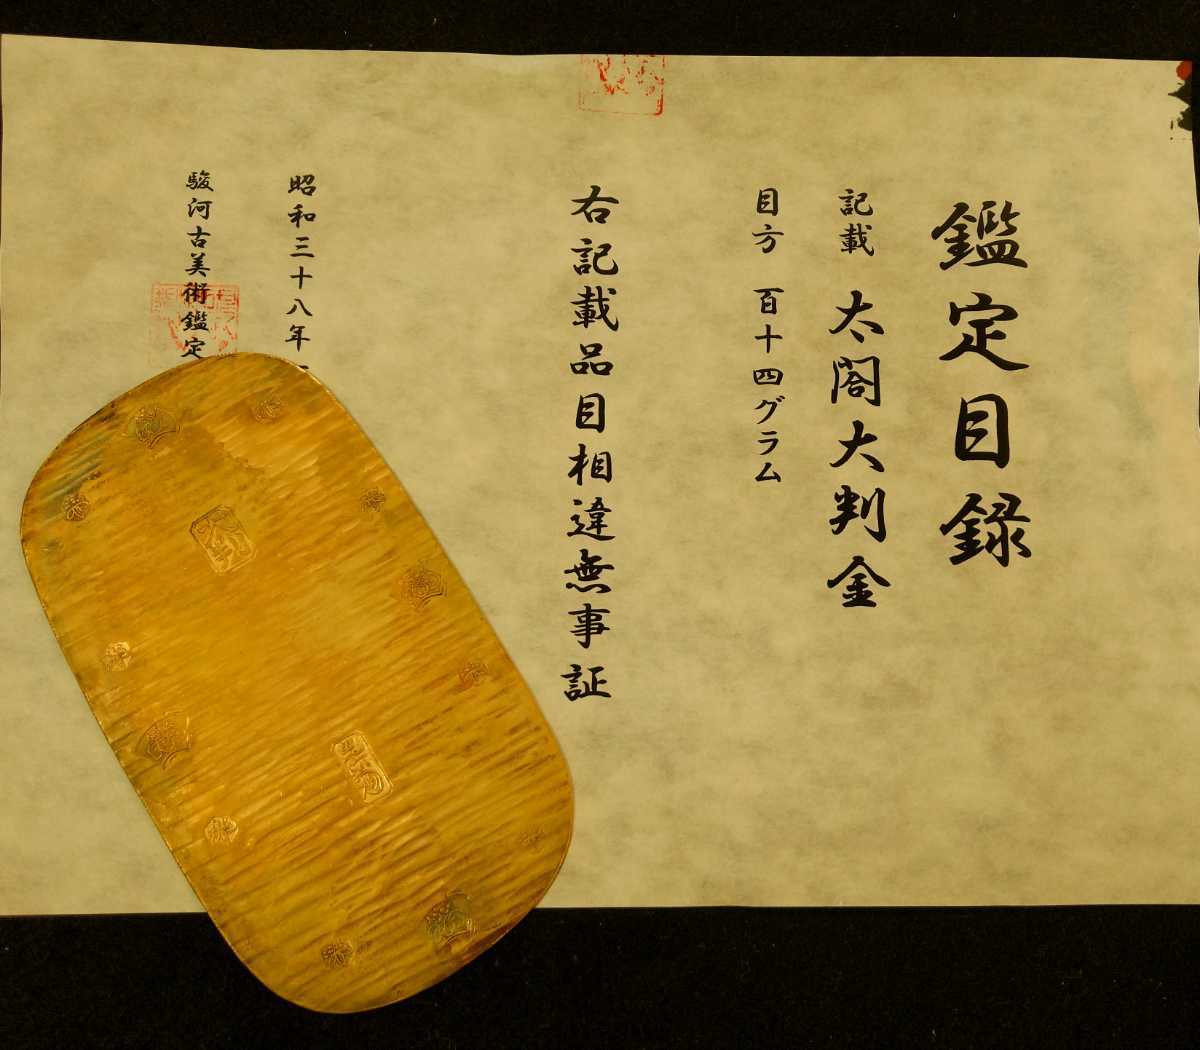 鑑定目録
記載 太閤大判金
目方 百十四グラム
右記載品目相違無事証
昭和三十八年
駿河古美術鑑定